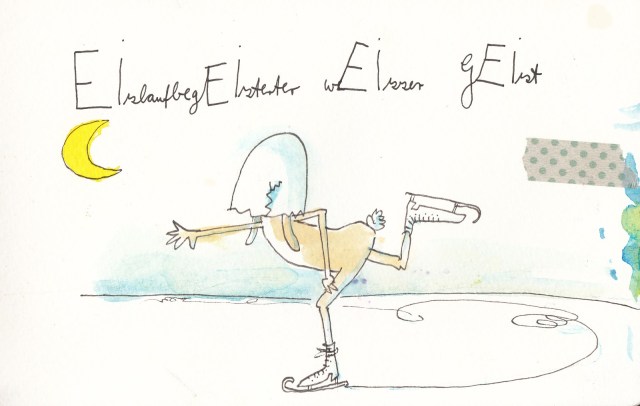 EislaufbegEisterter wEisser gEist